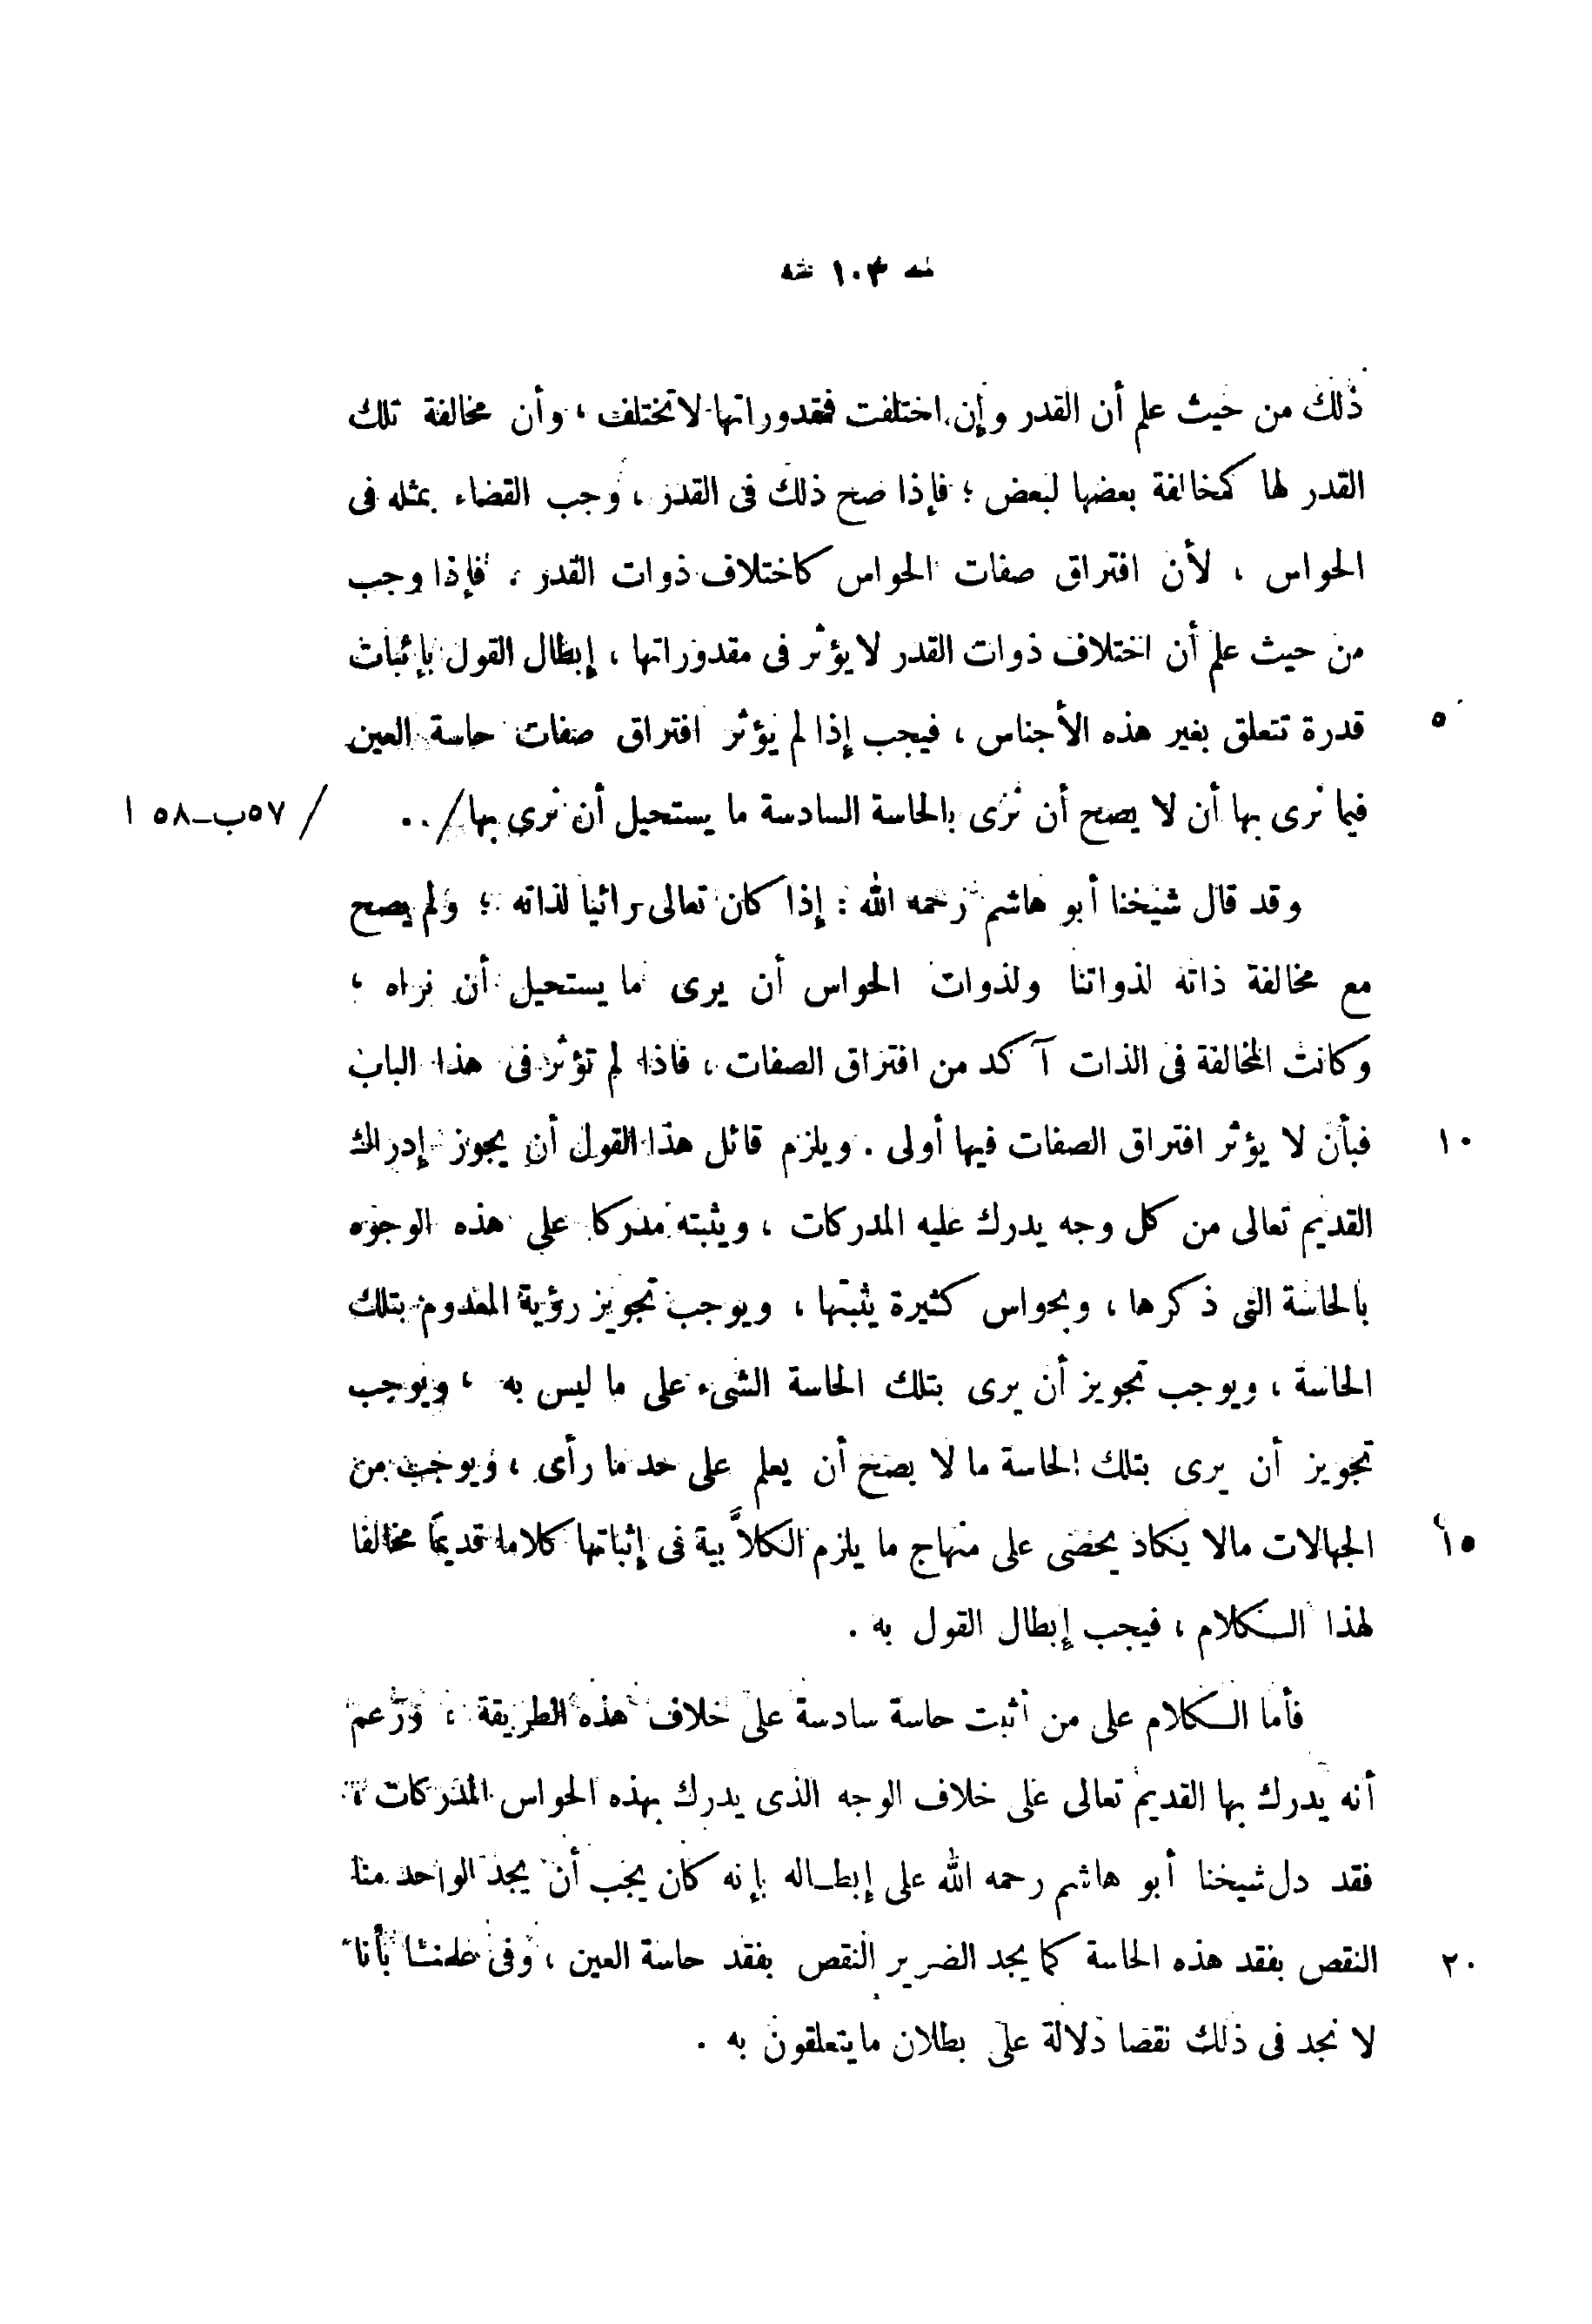 ١٠٣
ذلك من حيث علم أن القدر وإن اختلفت فمقدوراتها لا تختلف ، وأن مخالفة تلك
القدر لها كمخالفة بعضها لبعض ؛ فإذا صح ذلك فى القدر ، وجب القضاء بمثله فى
الحواس ، لأن افتراق صفات الحواس كاختلاف ذوات القدر ، فإذا وجب
من حيث علم أن اختلاف ذوات القدر لا يؤثر فى مقدوراتها ، إبطال القول بإثبات
٥ قدرة تتعلق بغير هذه الأجناس ، فيجب إذا لم يؤثر افتراق صفات حاسة العين
فيما نرى بها أن لا يصح أن نرى بالحاسة السادسة ما يستحيل أن نرى بها / . . / ٥٧ب–٥٨ ا
وقد قال شيخنا أبو هاشم رحمه الله : إذا كان تعالى رائيا لذاته ؛ ولم يصح
مع مخالفة ذاته لذواتنا ولذوات الحواس أن يرى ما يستحيل أن نراه ؛
وكانت المخالفة فى الذات آكد من افتراق الصفات ، فاذا لم تؤثر فى هذا الباب
١٠ فبأن لا يؤثر افتراق الصفات فيها أولى . ويلزم قائل هذا القول أن يجوز إدراك
القديم تعالى من كل وجه يدرك عليه المدركات ، ويثبته مدركا على هذه الوجوه
بالحاسة التى ذكرها ، وبحواس كثيرة يثبتها ، ويوجب تجويز رؤية المعدوم بتلك
الحاسة ، ويوجب تجويز أن يرى بتلك الحاسة الشىء على ما ليس به ، ويوجب
تجويز أن يرى بتلك الحاسة ما لا يصح أن يعلم على حد ما رأى ، ويوجب من
١٥ الجهالات مالا يكاد يحصى على منهاج ما يلزم الكلاَّبية فى إثباتها كلاما قديمًا مخالفا
لهذا الكلام ، فيجب إبطال القول به .
فأما الكلام على من أثبت حاسة سادسة على خلاف هذه الطريقة ، وزعم
أنه يدرك بها القديم تعالى على خلاف الوجه الذى يدرك بهذه الحواس المدركات ،
فقد دل شيخنا أبو هاشم رحمه الله على إبطاله بإنه كان يجب أن يجد الواحد منا
٢٠ النقص بفقد هذه الحاسة كما يجد الضرير النقص بفقد حاسة العين ، وفى علمنا بأنا
لا نجد فى ذلك نقصا دلالة على بطلان ما يتعلقون به .